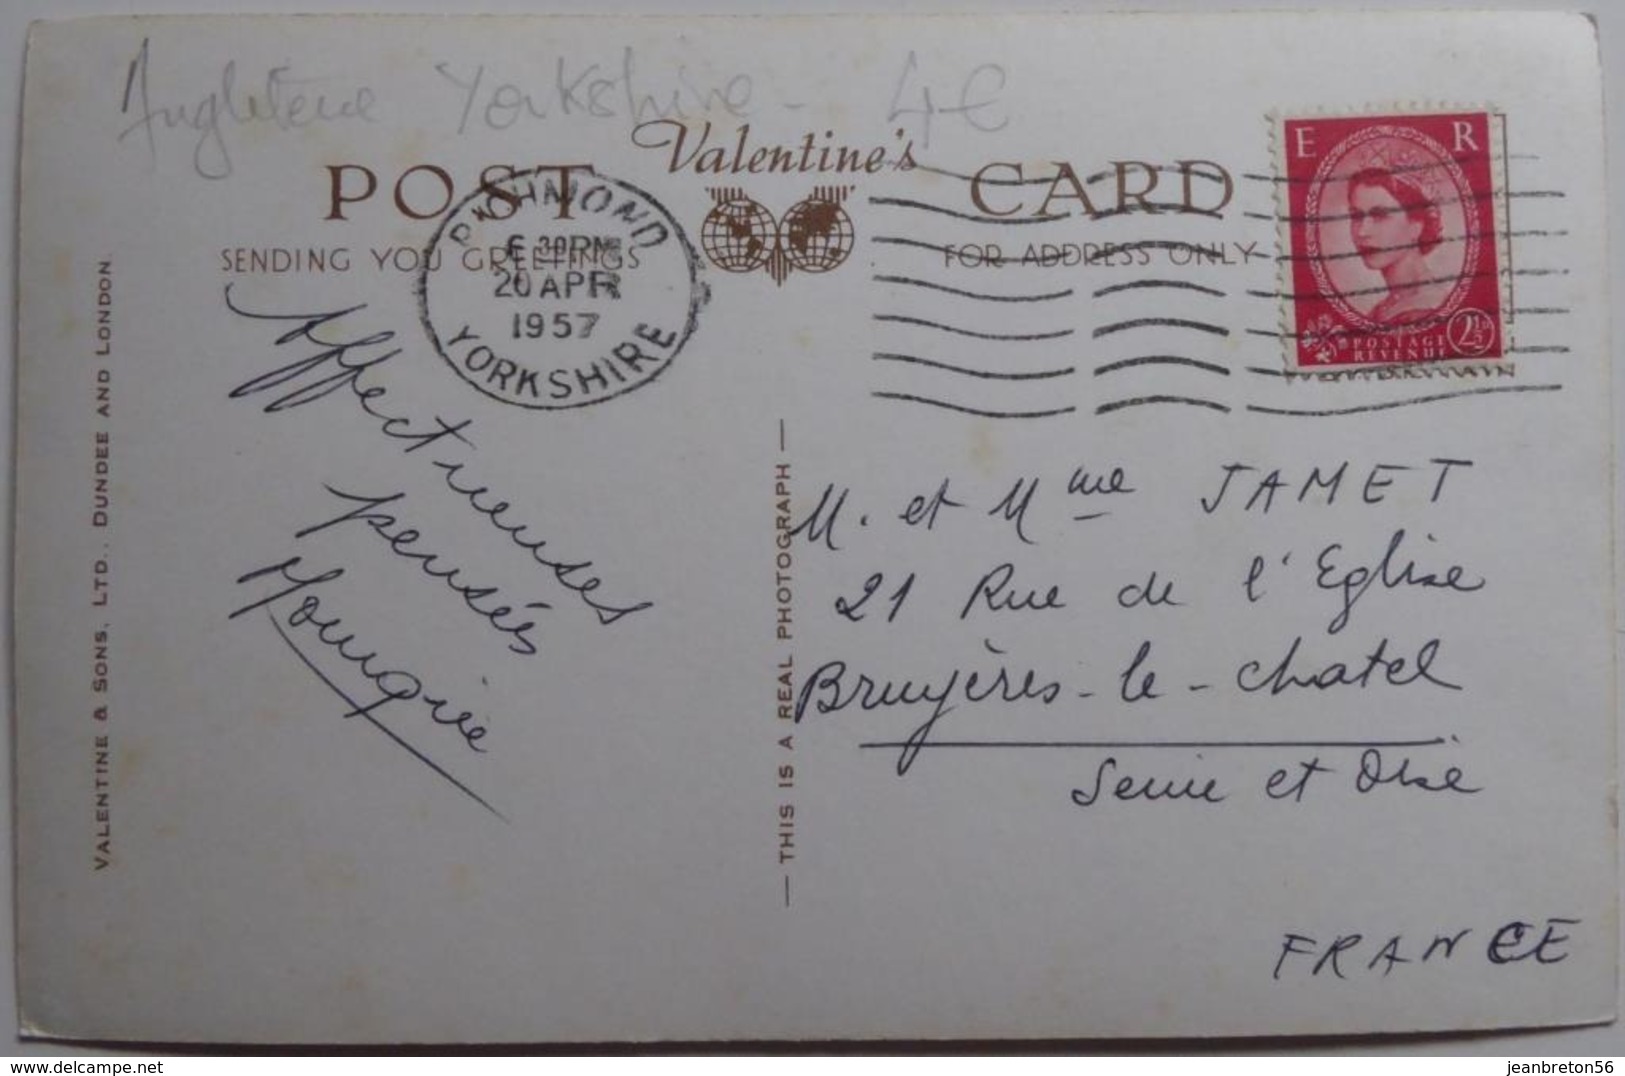 Angleterre Yorkshire - 4€
Valentine's
POST CARD
SENDING YOU GREETINGS
FOR ADDRESS ONLY
RICHMOND
6.30PM
20 APR
1957
YORKSHIRE
E R
POSTAGE
REVENUE
2½d
VALENTINE & SONS, LTD., DUNDEE AND LONDON.
Affectueuses
pensées
— THIS IS A REAL PHOTOGRAPH —
M. et Mme JAMET
21 Rue de l'Eglise
Bruyères-le-Chatel
Seine et Oise
FRANCE
www.delcampe.net
jeanbreton56